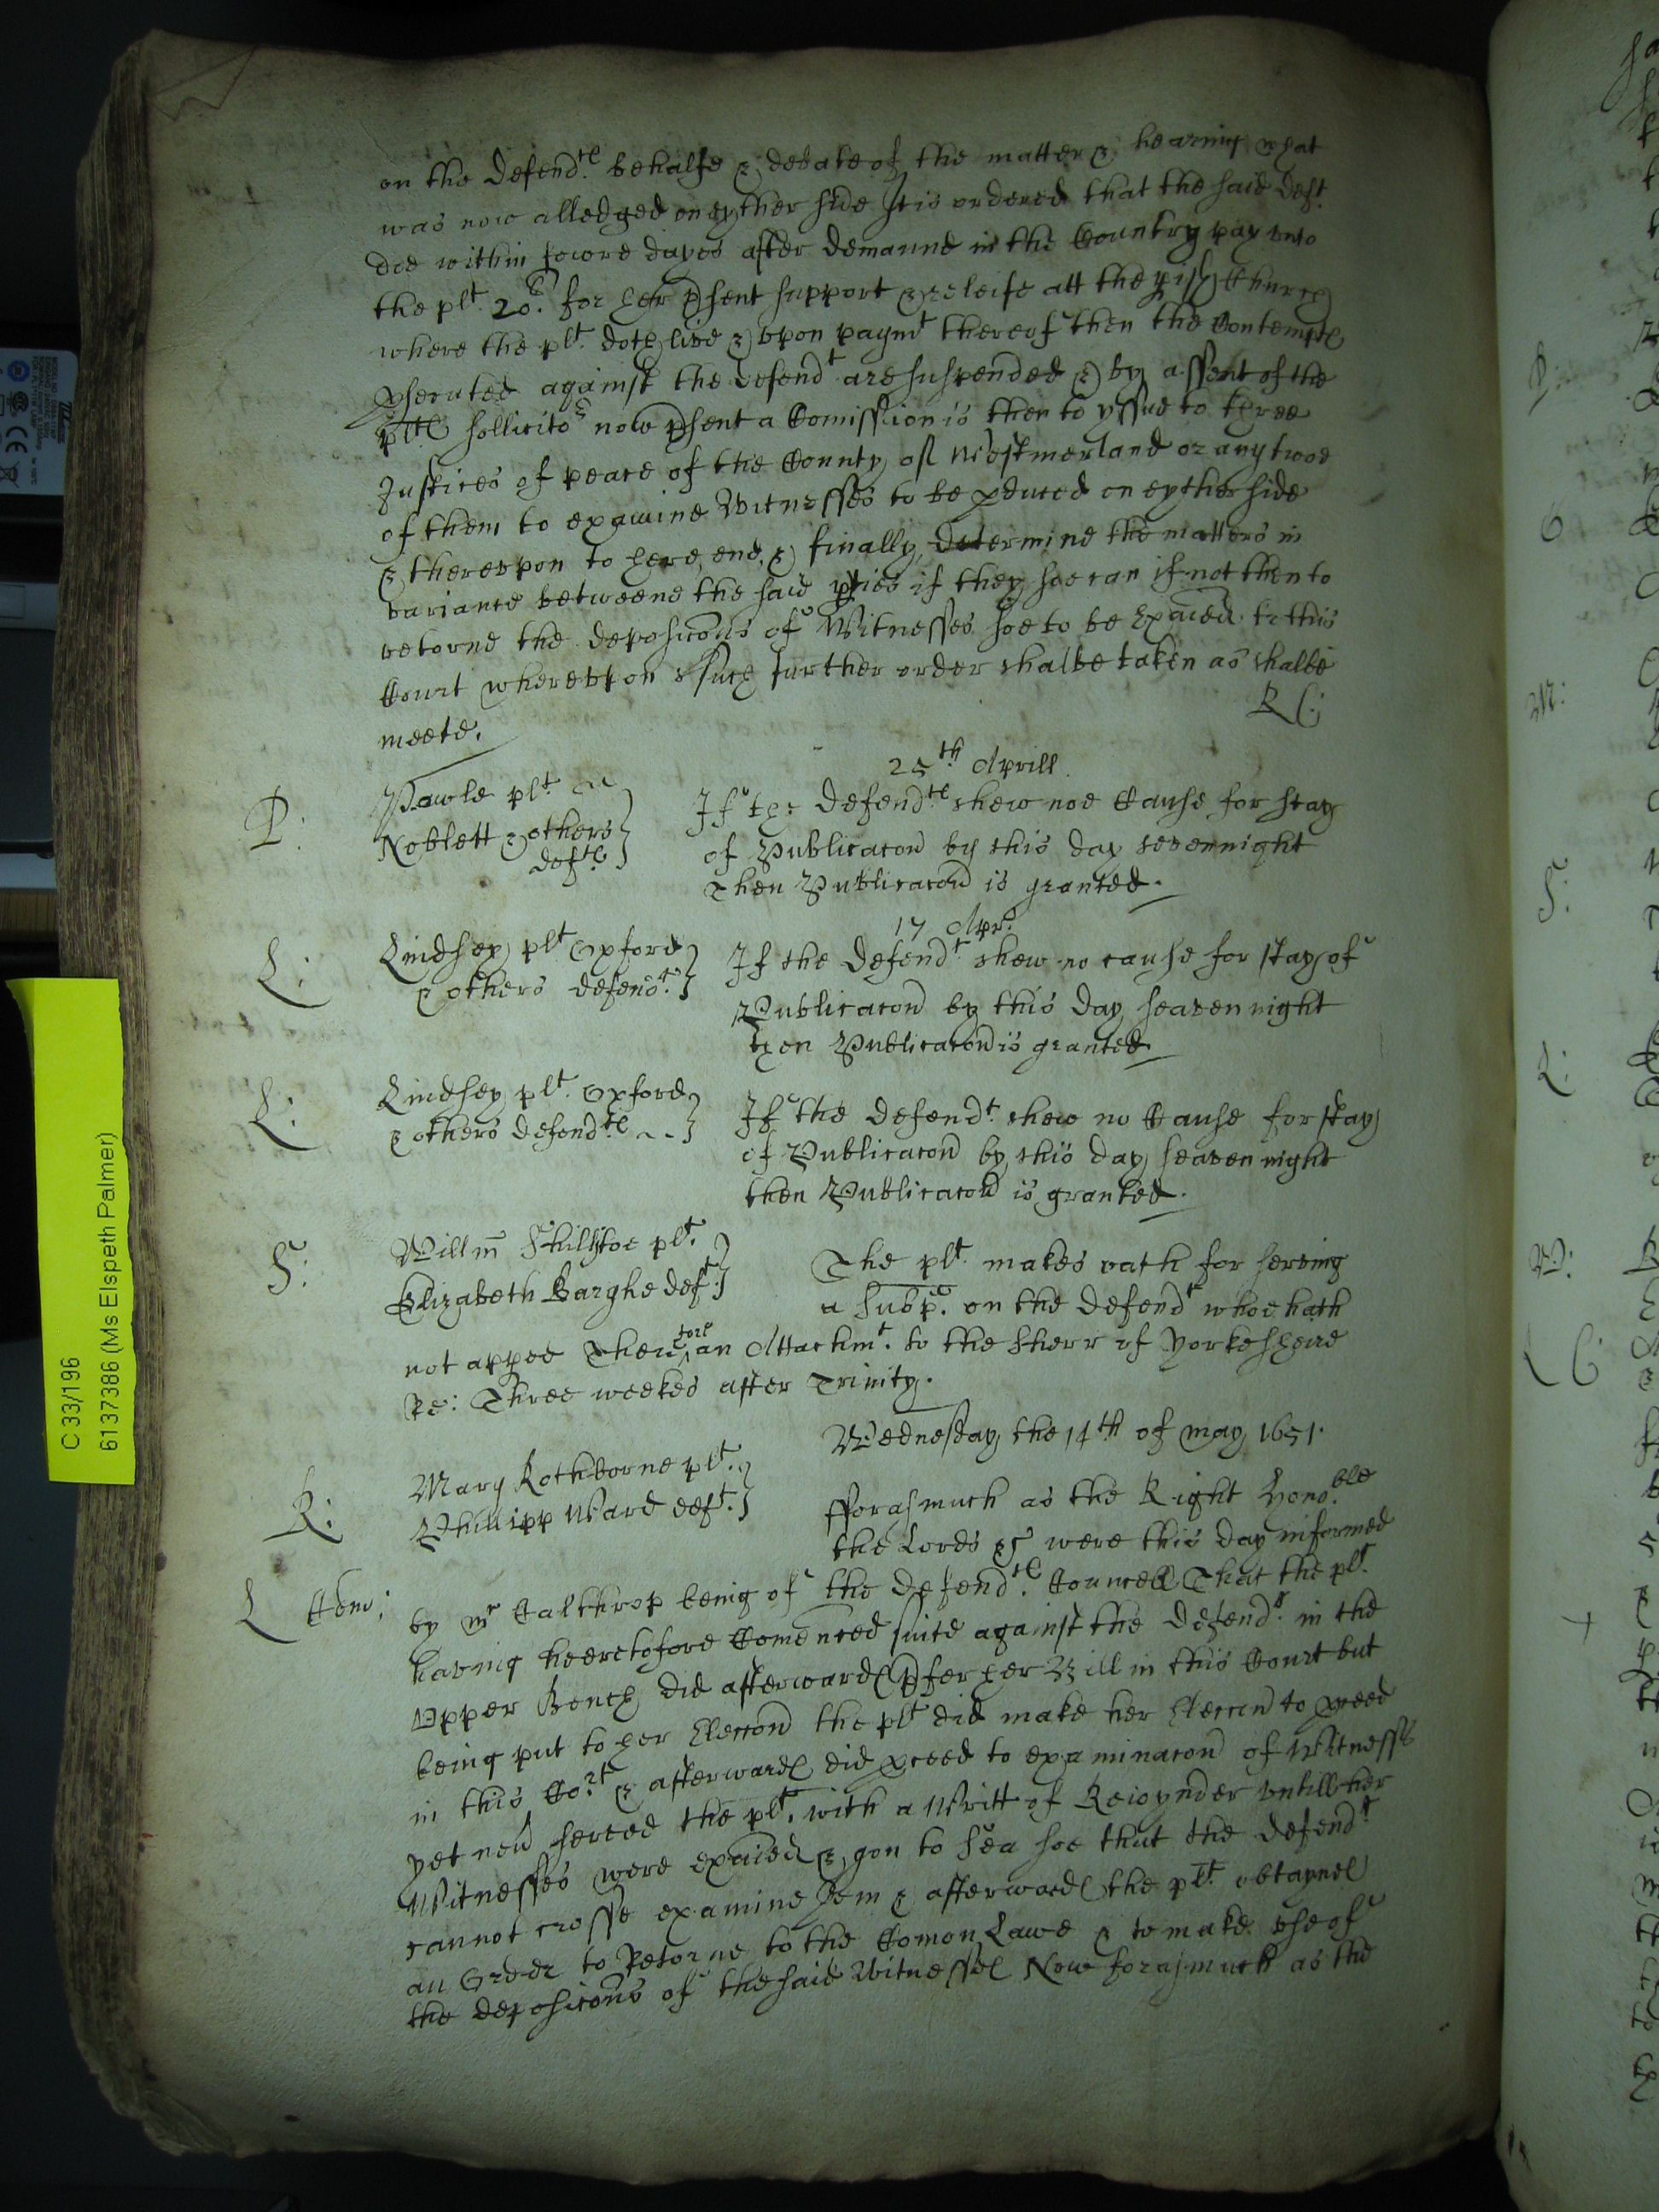 on the Defend.ts behalfe & debate of the matter & hearing what
was now alledged on eyther side It is ordered that the said Deft.
doe within fowre dayes after demaund in the Country pay unto
the plt. 20s. for her psent support & releife att the pish Church
where the plt. doth live & vpon paymt thereof then the Contempts
psecuted against the defendt are suspended & by assent of the
plts sollicitor now psent a Comission is then to yssue to three
Justices of peace of the County of Westmerland or any twoe
of them to examine Witnesses to be pduced on eyther side
& therevpon to heare, end, & finally determine the matters in
variance betweene the said pties if they soe can if not then to
retorne the deposicons of Witnesses soe to be Examied to this
Court wherevpon such further order shalbe taken as shalbe
meete.
R C:
25th Aprill
P:
Pawle plt.
Noblett & others
defts
If the Defend.ts shew noe Cause for stay
of Publicacon by this day sevennight
Then Publicacon is granted.
17 Apr:
L:
Lindsey plt Oxford
& others defendt.
If the Defendt. shew no cause for stay of
Publicacon by this day seaven night
then Publicacon is granted
L:
Lindsey plt. Oxford
& others defend.ts
If the Defendt. shew no Cause for stay
of Publicacon by this day seaven night
then Publicacon is granted.
S:
Willm plt.
Elizabeth Barghe deft.
The plt. makes oath for serving
a subp. on the Defendt whoe hath
not appee Therefore an Attachmt. to the Sherr of Yorkesheire
Re: Three weekes after Trinity.
Wednesday the 14th of may 1651.
R:
Mary Rothborne plt.
Phillipp Ward deft.
fforasmuch as the Right Hono.ble
the Lords &c were this day informed
L
by mr Calthrop being of the Defend.ts Councell That the plt.
having heeretofore Comenced suite against the Defendt. in the
Vpper Bench did afterwards pfer her Bill in this Court but
being put to her Eleccon the plt did make her Eleccon to pceed
in this Cort & afterwards did pceed to examinacon of Witnesses
yet nev served the plt. with a Writt of Reioynder vntill her
Witnesses were examied & gon to Sea soe that the defendt
cannot crosse examine them & afterwards the plt. obtayned
an Order to Retorne to the Comon Lawe & to make vse of
the deposicons of the said Witnesses Now forasmuch as the
C 33/196
6137386 (Ms Elspeth Palmer)